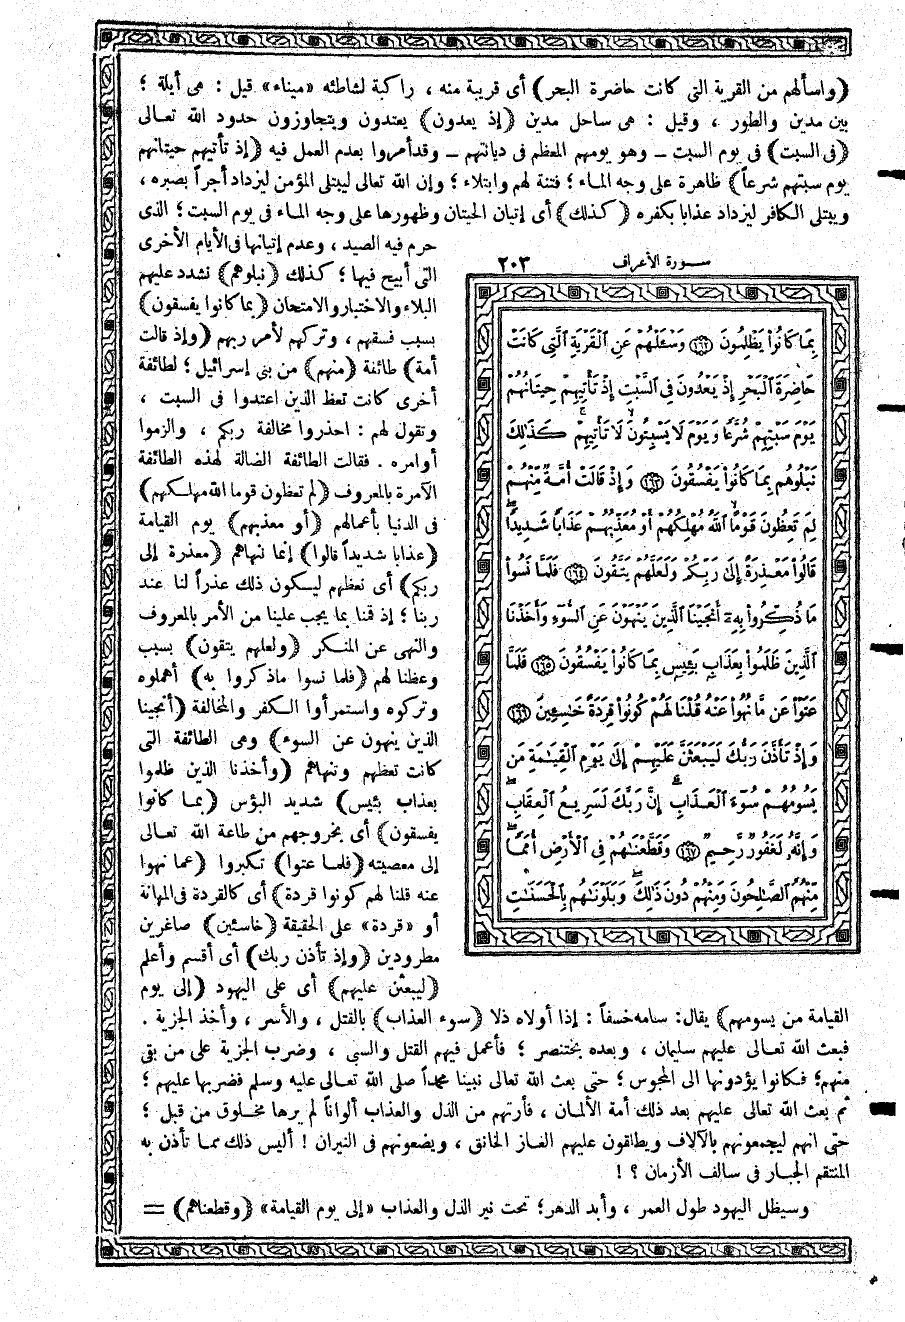 (واسألهم من القرية التى كانت حاضرة البحر) أى قريبة منه ، راكبة لشاطئه «ميناء» قيل : هى أيلة ؛
بين مدين والطور ، وقيل : هى ساحل مدين (إذ يعدون) يعتدون ويتجاوزون حدود الله تعالى
(فى السبت) فى يوم السبت ــ وهو يومهم المعظم فى ديانتهم ــ وقد أمروا بعدم العمل فيه (إذ تأتيهم حيتانهم
يوم سبتهم شرعاً) ظاهرة على وجه الماء ؛ فتنة لهم وابتلاء ؛ وإن الله تعالى ليبتلى المؤمن ليزداد أجراً بصبره ،
ويبتلى الكافر ليزداد عذابا بكفره (كذلك) أى إتيان الحيتان وظهورها على وجه الماء فى يوم السبت ؛ الذى
حرم فيه الصيد ، وعدم إتيانها فى الأيام الأخرى
التى أبيح فيها ؛ كذلك (نبلوهم) نشدد عليهم
البلاء والاختبار والامتحان (بما كانوا يفسقون)
بسبب فسقهم ، وتركهم لأمر ربهم (وإذ قالت
أمة) طائفة (منهم) من بنى إسرائيل ؛ لطائفة
أخرى كانت تعظ الذين اعتدوا فى السبت ،
وتقول لهم : احذروا مخالفة ربكم ، والزموا
أوامره . فقالت الطائفة الضالة لهذه الطائفة
الآمرة بالمعروف (لم تعظون قوما الله مهلكهم)
فى الدنيا بأعمالهم (أو معذبهم) يوم القيامة
(عذابا شديداً قالوا) إنما ننهاهم (معذرة إلى
ربكم) أى نعظهم ليسكون ذلك عذراً لنا عند
ربنا ؛ إذ قمنا بما يجب علينا من الأمر بالمعروف
والنهى عن المنكر (ولعلهم يتقون) بسبب
وعظنا لهم (فلما نسوا ماذكروا به) أهملوه
وتركوه واستمرأوا الكفر والمخالفة (أنجينا
الذين ينهون عن السوء) وهى الطائفة التى
كانت تعظهم وتنهاهم (وأخذنا الذين ظلموا
بعذاب بئيس) شديد البؤس (بما كانوا
يفسقون) أى بخروجهم من طاعة الله تعالى
إلى معصيته (فلما عتوا) تكبروا (عما نهوا
عنه قلنا لهم كونوا قردة) أى كالقردة فى المهانة
أو «قردة» على الحقيقة (خاسئين) صاغرين
مطرودين (وإذ تأذن ربك) أى أقسم وأعلم
(ليبعثن عليهم) أى على اليهود (إلى يوم
سورة الأعراف ٢٠٣
بِمَا كَانُوا۟ يَظْلِمُونَ ١٦٢ وَسْـَٔلْهُمْ عَنِ ٱلْقَرْيَةِ ٱلَّتِى كَانَتْ
حَاضِرَةَ ٱلْبَحْرِ إِذْ يَعْدُونَ فِى ٱلسَّبْتِ إِذْ تَأْتِيهِمْ حِيتَانُهُمْ
يَوْمَ سَبْتِهِمْ شُرَّعًا وَيَوْمَ لَا يَسْبِتُونَ لَا تَأْتِيهِمْ كَذَٰلِكَ
نَبْلُوهُم بِمَا كَانُوا۟ يَفْسُقُونَ ١٦٣ وَإِذْ قَالَتْ أُمَّةٌ مِّنْهُمْ
لِمَ تَعِظُونَ قَوْمًا ٱللَّهُ مُهْلِكُهُمْ أَوْ مُعَذِّبُهُمْ عَذَابًا شَدِيدًا
قَالُوا۟ مَعْذِرَةً إِلَىٰ رَبِّكُمْ وَلَعَلَّهُمْ يَتَّقُونَ ١٦٤ فَلَمَّا نَسُوا۟
مَا ذُكِّرُوا۟ بِهِۦٓ أَنجَيْنَا ٱلَّذِينَ يَنْهَوْنَ عَنِ ٱلسُّوٓءِ وَأَخَذْنَا
ٱلَّذِينَ ظَلَمُوا۟ بِعَذَابٍۭ بَـِٔيسٍۭ بِمَا كَانُوا۟ يَفْسُقُونَ ١٦٥ فَلَمَّا
عَتَوْا۟ عَن مَّا نُهُوا۟ عَنْهُ قُلْنَا لَهُمْ كُونُوا۟ قِرَدَةً خَٰسِـِٔينَ ١٦٦
وَإِذْ تَأَذَّنَ رَبُّكَ لَيَبْعَثَنَّ عَلَيْهِمْ إِلَىٰ يَوْمِ ٱلْقِيَٰمَةِ مَن
يَسُومُهُمْ سُوٓءَ ٱلْعَذَابِ إِنَّ رَبَّكَ لَسَرِيعُ ٱلْعِقَابِ
وَإِنَّهُۥ لَغَفُورٌ رَّحِيمٌ ١٦٧ وَقَطَّعْنَٰهُمْ فِى ٱلْأَرْضِ أُمَمًا
مِّنْهُمُ ٱلصَّٰلِحُونَ وَمِنْهُمْ دُونَ ذَٰلِكَ وَبَلَوْنَٰهُم بِٱلْحَسَنَٰتِ
القيامة من يسومهم) يقال : سامه خسفاً : إذا أولاه ذلا (سوء العذاب) بالقتل ، والأسر ، وأخذ الجزية .
فبعث الله تعالى عليهم سليمان ، وبعده بختنصر ؛ فأعمل فيهم القتل والسبى ، وضرب الجزية على من بقى
منهم ؛ فكانوا يؤدونها الى المجوس ؛ حتى بعث الله تعالى نبينا محمداً صلى الله تعالى عليه وسلم فضربها عليهم ؛
ثم بعث الله تعالى عليهم بعد ذلك أمة الألمان ، فأرتهم من الذل والعذاب ألواناً لم يرها مخلوق من قبل ؛
حتى انهم ليجمعونهم بالآلاف ويطلقون عليهم الغاز الخانق ، ويضعونهم فى النيران ! أليس ذلك مما تأذن به
المنتقم الجبار فى سالف الأزمان ؟ !
وسيظل اليهود طول العمر ، وأبد الدهر ؛ تحت نير الذل والعذاب «إلى يوم القيامة» (وقطعناهم) =